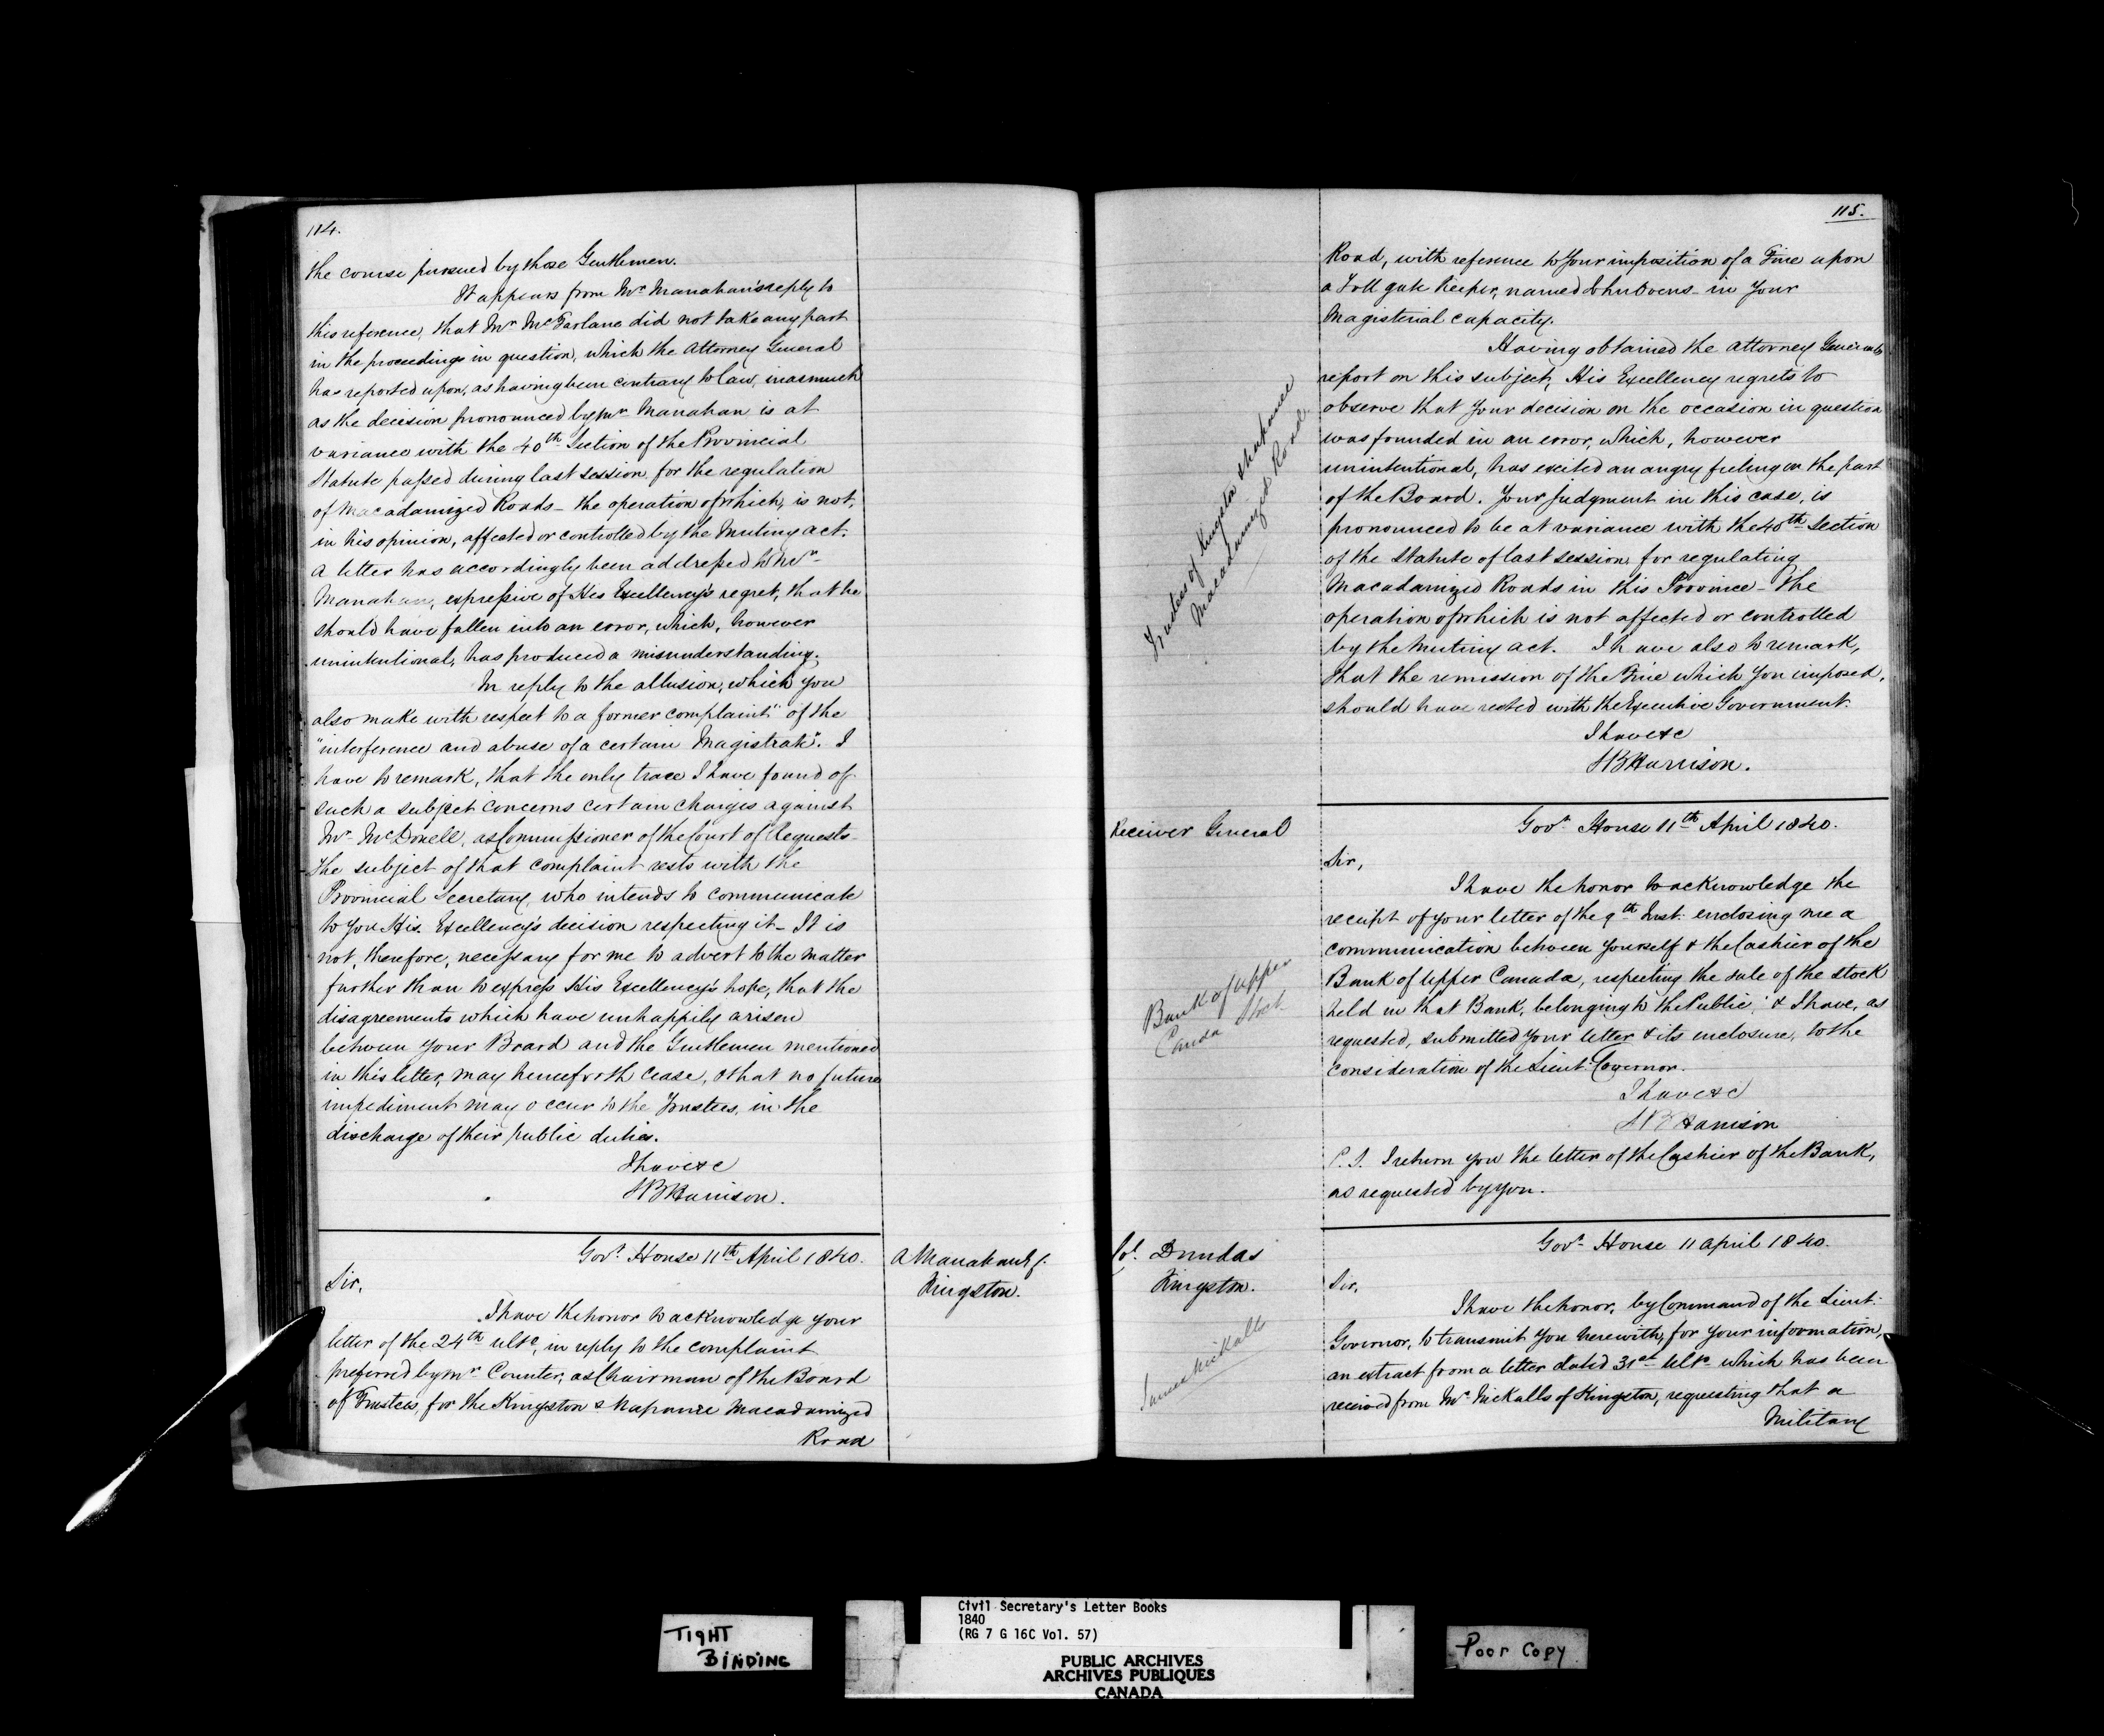 114.
the course pursued by those Gentlemen.
It appears from Mr Manahan's reply to
this reference, that Mr McFarlane did not take any part
in the proceedings in question, which the Attorney General
has reported upon, as having been contrary to law, inasmuch
as the decision pronounced by Mr Manahan is at
variance with the 40th Section of the Provincial
Statute passed during last session, for the regulation
of Macadamized Roads - the operation of which, is not,
in his opinion, affected or controlled by the Mutiny act.
A letter has accordingly been addressed to Mr
Manahan, expressive of His Excellency's regret, that he
should have fallen into an error, which, however
unintentional, has produced a misunderstanding.
In reply to the allusion, which you
also make with respect to a former complaint "of the
"interference and abuse of a certain Magistrate". I
have to remark, that the only trace I have found of
such a subject concerns certain charges against
Mr McDonell, as Commissioner of the Court of Requests
the subject of that complaint rests with the
Provincial Secretary, who intends to communicate
to you His Excellency's decision respecting it - It is
not, therefore, necessary for me to advert to the matter
further than to express His Excellency's hope, that the
disagreements which have unhappily arisen
between your Board and the Gentlemen mentioned
in this letter, may henceforth cease, & that no future
impediment may occur to the Trustees, in the
discharge of their public duties.
I have &c
SB Harrison.
Govt House 11th April 1840.
A Manahan Esq.
Kingston.
Sir,
I have the honor to acknowledge your
letter of the 24th ulto, in reply to the complaint
preferred by Mr Counter, as Chairman of the Board
of Trustees, for the Kingston & Napanee Macadamized
Road
115.
Road, with reference to your imposition of a Fine upon
a Toll gate keeper, named John Ovens in your
Magisterial capacity.
Having obtained the Attorney General's
report on this subject, His Excellency regrets to
observe that your decision on the occasion in question
was founded in an error, which, however
unintentional, has excited an angry feeling on the part
of the Board. Your judgment in this case, is
pronounced to be at variance with the 40th Section
of the Statute of last session, for regulating
Macadamized Roads in this Province - the
operation of which is not affected or controlled
by the Mutiny act. I have also to remark,
that the remission of the Fine which you imposed,
should have rested with the Executive Government.
I have &c
SB Harrison.
Trustees of Kingston & Napanee
Macadamized Road.
Receiver General
Govt House 11th April 1840.
Sir,
I have the honor to acknowledge the
receipt of your letter of the 9th Inst. enclosing me a
communication between yourself & the Cashier of the
Bank of Upper Canada, respecting the sale of the stock
held in that Bank, belonging to the Public, & I have, as
requested, submitted your letter & its enclosure, to the
consideration of the Lieut Governor.
I have &c
SB Harrison
P.S. I return you the letter of the Cashier of the Bank,
as requested by you.
Bank of Upper
Canda Stock
Col. Dundas
Kingston.
Govt House 11 April 1840.
Sir,
I have the honor, by Command of the Lieut:
Governor, to transmit you herewith, for your information,
an extract from a letter dated 31st ulto which has been
received from Mr Nickalls of Kingston, requesting that a
Military
James Nickalls
TIGHT
BINDING
Civil Secretary's Letter Books
1840
(RG 7 G 16C Vol. 57)
PUBLIC ARCHIVES
ARCHIVES PUBLIQUES
CANADA
Poor Copy